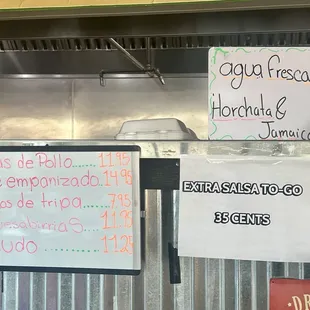 agua Fresca
Horchata &
Jamaica
s de Pollo......11.95
empanizado.14.95
as de tripa.....7.95
11.95
udo...........11.25
EXTRA SALSA TO-GO
35 CENTS